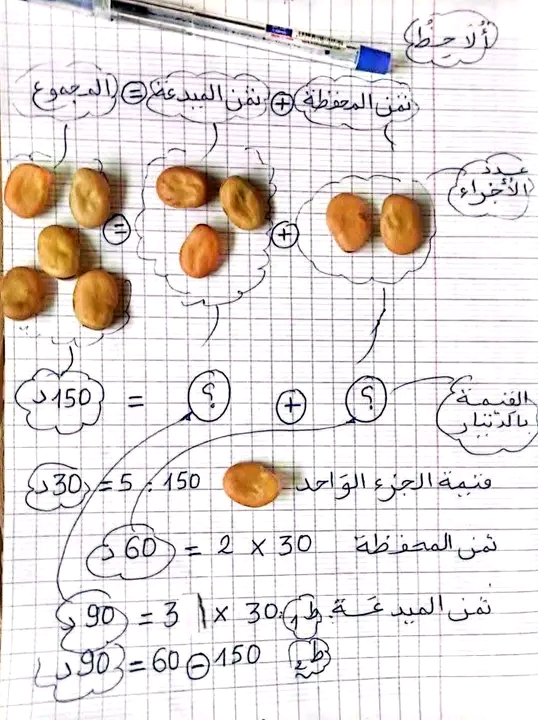 ألاحظ
ثمن المحفظة + ثمن الميدعة = المجموع
عدد
الأجزاء
+ =
القيمة
بالدينار
؟ + ؟ = 150 د
قيمة الجزء الواحد 150 : 5 = 30 د
ثمن المحفظة 30 × 2 = 60 د
ثمن الميدعة. ط1: 30 × 3 = 90 د
ط2 150 - 60 = 90 د